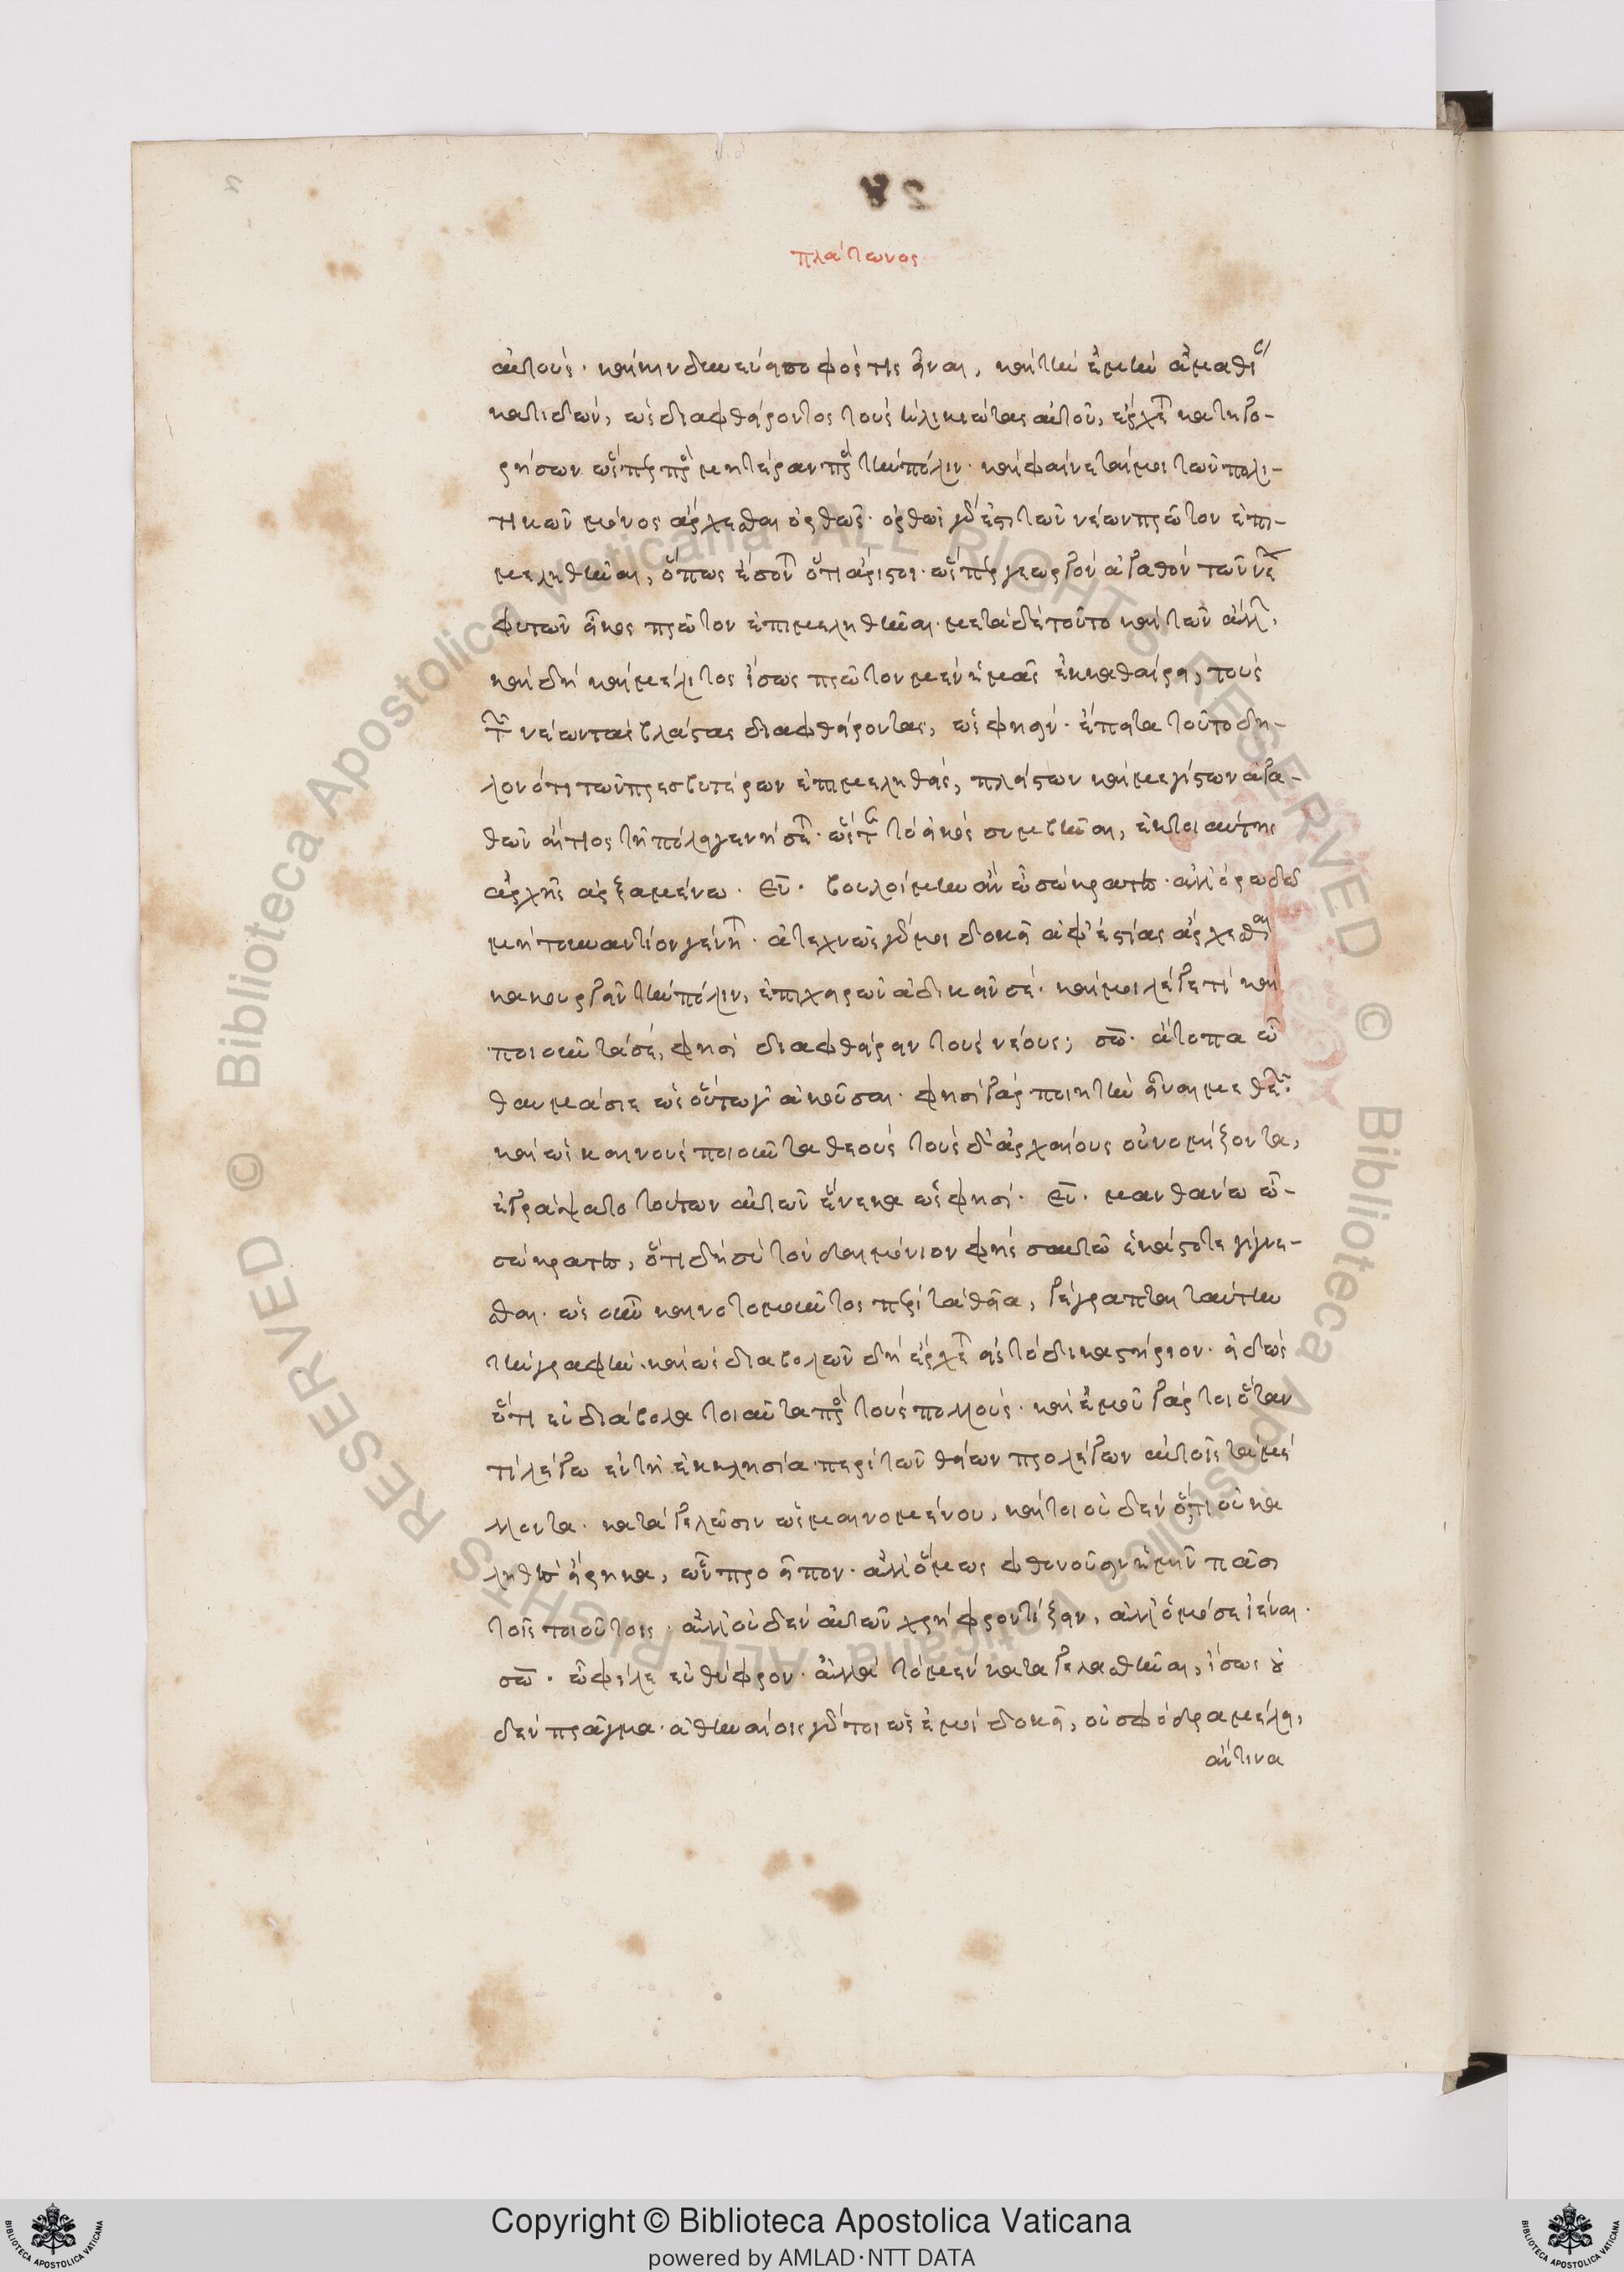 πλάτωνος
αὐτούς· καὶ κινδυνεύει σοφός τις εἶναι, καὶ τὴν ἐμὴν ἀμαθί
κατιδών, ὡς διαφθείροντος τοὺς ἡλικιώτας αὐτοῦ, ἔρχεται κατηγο-
ρήσων ὥσπερ πρὸς μητέραν πρὸς τὴν πόλιν· καὶ φαίνεταί μοι τῶν πολι-
τικῶν μόνος ἄρχεσθαι ὀρθῶς· ὀρθῶς γάρ ἐστι τῶν νέων πρῶτον ἐπι-
μεληθῆναι, ὅπως ἔσονται ὅτι ἄριστοι· ὥσπερ γεωργὸν ἀγαθὸν τῶν νέων
φυτῶν εἰκὸς πρῶτον ἐπιμεληθῆναι· μετὰ δὲ τοῦτο καὶ τῶν ἄλλων,
καὶ δὴ καὶ μέλιτος ἴσως πρῶτον μὲν ἡμᾶς ἐκκαθαίρει, τοὺς
τῶν νέων τὰς βλάστας διαφθείροντας, ὥς φησιν· ἔπειτα τοῦτο δη-
λονότι τῶν πρεσβυτέρων ἐπιμεληθείς, πλείστων καὶ μεγίστων ἀγα-
θῶν αἴτιος τῇ πόλει γενήσεται· ὥς γε τὸ εἰκὸς συμβῆναι, ἐκ τοιαύτης
ἀρχῆς ἀρξαμένω· ευ· βουλοίμην ἂν ὦ σώκρατες· ἀλλ' ὀρρωδῶ
μὴ τοὐναντίον γένηται· ἀτεχνῶς γάρ μοι δοκεῖ ἀφ' ἑστίας ἄρχεσθαι
κακουργεῖν τὴν πόλιν, ἐπιχειρῶν ἀδικεῖν σέ· καί μοι λέγε τί καὶ
ποιοῦντά σέ, φησι διαφθείρειν τοὺς νέους; σω· ἄτοπα ὦ
θαυμάσιε ὡς οὕτω γ' ἀκοῦσαι· φησὶ γάρ ποιητὴν εἶναί με θεῶν·
καὶ ὡς καινοὺς ποιοῦντα θεοὺς τοὺς δ' ἀρχαίους οὐ νομίζοντα,
ἐγράψατο τούτων αὐτῶν ἕνεκα ὥς φησι· ευ· μανθάνω ὦ-
σώκρατες, ὅτι δὴ σὺ τὸν δαιμόνιον φῂς σαυτῷ ἑκάστοτε γίγνε-
σθαι· ὡς οὖν καινοτομοῦντος περὶ τὰ θεῖα, γέγραπται ταύτην
τὴν γραφήν· καὶ ὡς διαβολῶν δὴ ἔρχεται εἰς τὸ δικαστήριον· εἰδὼς
ὅτι εὐδιάβολα τοιαῦτα πρὸς τοὺς πολλούς· καὶ ἐμοῦ γάρ τοι ὅταν
τι λέγω ἐν τῇ ἐκκλησία περὶ τῶν θείων προλέγων αὐτοῖς τὰ μέ
λλοντα· καταγελῶσιν ὡς μαινομένου, καί τοι οὐδὲν ὅτι οὐκ ἀ
ληθὲς εἴρηκα, ὧν προεῖπον· ἀλλ' ὅμως φθονοῦσιν ἡμῖν πᾶσι
τοῖς τοιούτοις· ἀλλ' οὐδὲν αὐτῶν χρὴ φροντίζειν, ἀλλ' ὁμόσε ἰέναι·
σω· ὦ φίλε εὐθύφρον· ἀλλὰ τὸ μὲν καταγελασθῆναι, ἴσως οὐ
δὲν πρᾶγμα· ἀθηναίοις γάρ τοι ὡς ἐμοὶ δοκεῖ, οὐ σφόδρα μέλει,
ἄν τινα
Copyright © Biblioteca Apostolica Vaticana
powered by AMLAD·NTT DATA